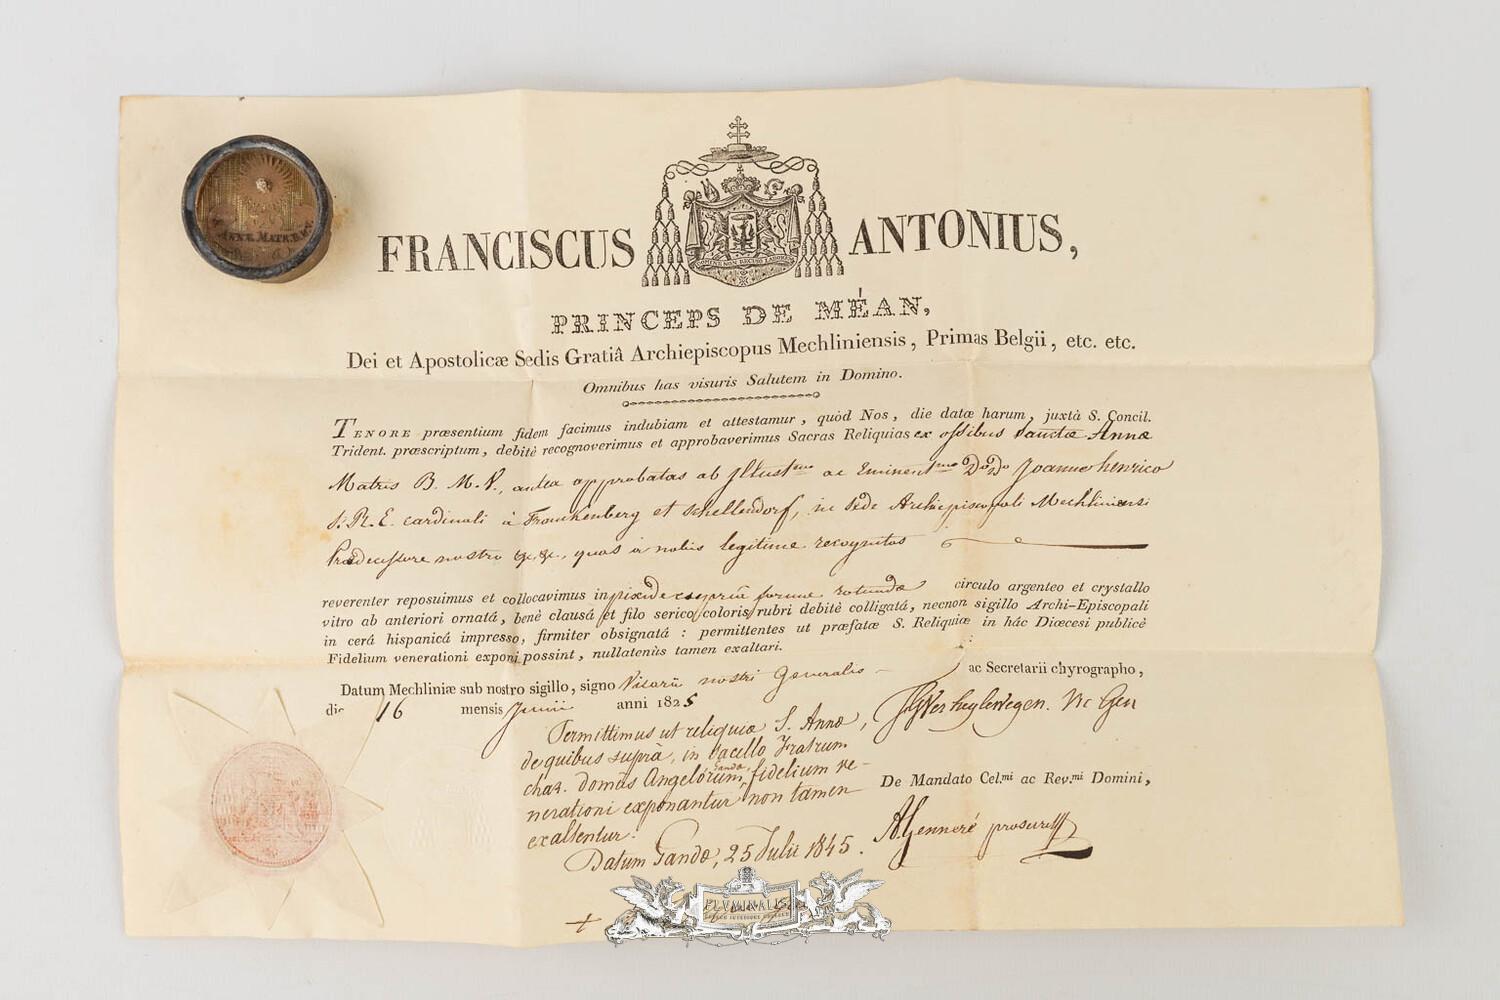 S. ANNÆ. MATR. B.V.
FRANCISCUS ANTONIUS,
DOMINE NON RECUSO LABOREM
PRINCEPS DE MÉAN,
Dei et Apostolicæ Sedis Gratiâ Archiepiscopus Mechliniensis, Primas Belgii, etc. etc.
Omnibus has visuris Salutem in Domino.
TENORE præsentium fidem facimus indubiam et attestamur, quòd Nos, die datæ harum, juxtà S. Concil.
Trident. præscriptum, debitè recognoverimus et approbaverimus Sacras Reliquias ex ossibus Sanctæ Annæ
Matris B. M. V., antea approbatas ab Illustmo ac Eminentmo Do Do Joanne henrico
S. R. E. cardinali à Franckenberg et Schellendorf, in sede Archiepiscopali Mechliniensi
Prædecessore nostro &c. &c., quas à nobis legitime recognitas
reverenter reposuimus et collocavimus in pixide cupreâ formæ rotundæ circulo argenteo et crystallo
vitro ab anteriori ornatâ, benè clausâ et filo serico coloris rubri debitè colligatâ, necnon sigillo Archi-Episcopali
in cerâ hispanicâ impresso, firmiter obsignatâ : permittentes ut præfatæ S. Reliquiæ in hâc Diœcesi publicè
Fidelium venerationi exponi possint, nullatenùs tamen exaltari.
Datum Mechliniæ sub nostro sigillo, signo Vicarii nostri Generalis ac Secretarii chyrographo,
die 16 mensis Junii anni 1825
Verheylewegen. Vic Gen
Permittimus ut reliquiæ S. Annæ,
de quibus suprà, in sacello Fratrum
char. domus Angelórum, Gandæ, fidelium ve-
nerationi exponantur non tamen
exaltentur.
Datum Gandæ, 25 Julii 1845.
De Mandato Cel.mi ac Rev.mi Domini,
A Genneré prosecret
+
PLUVMINALIS